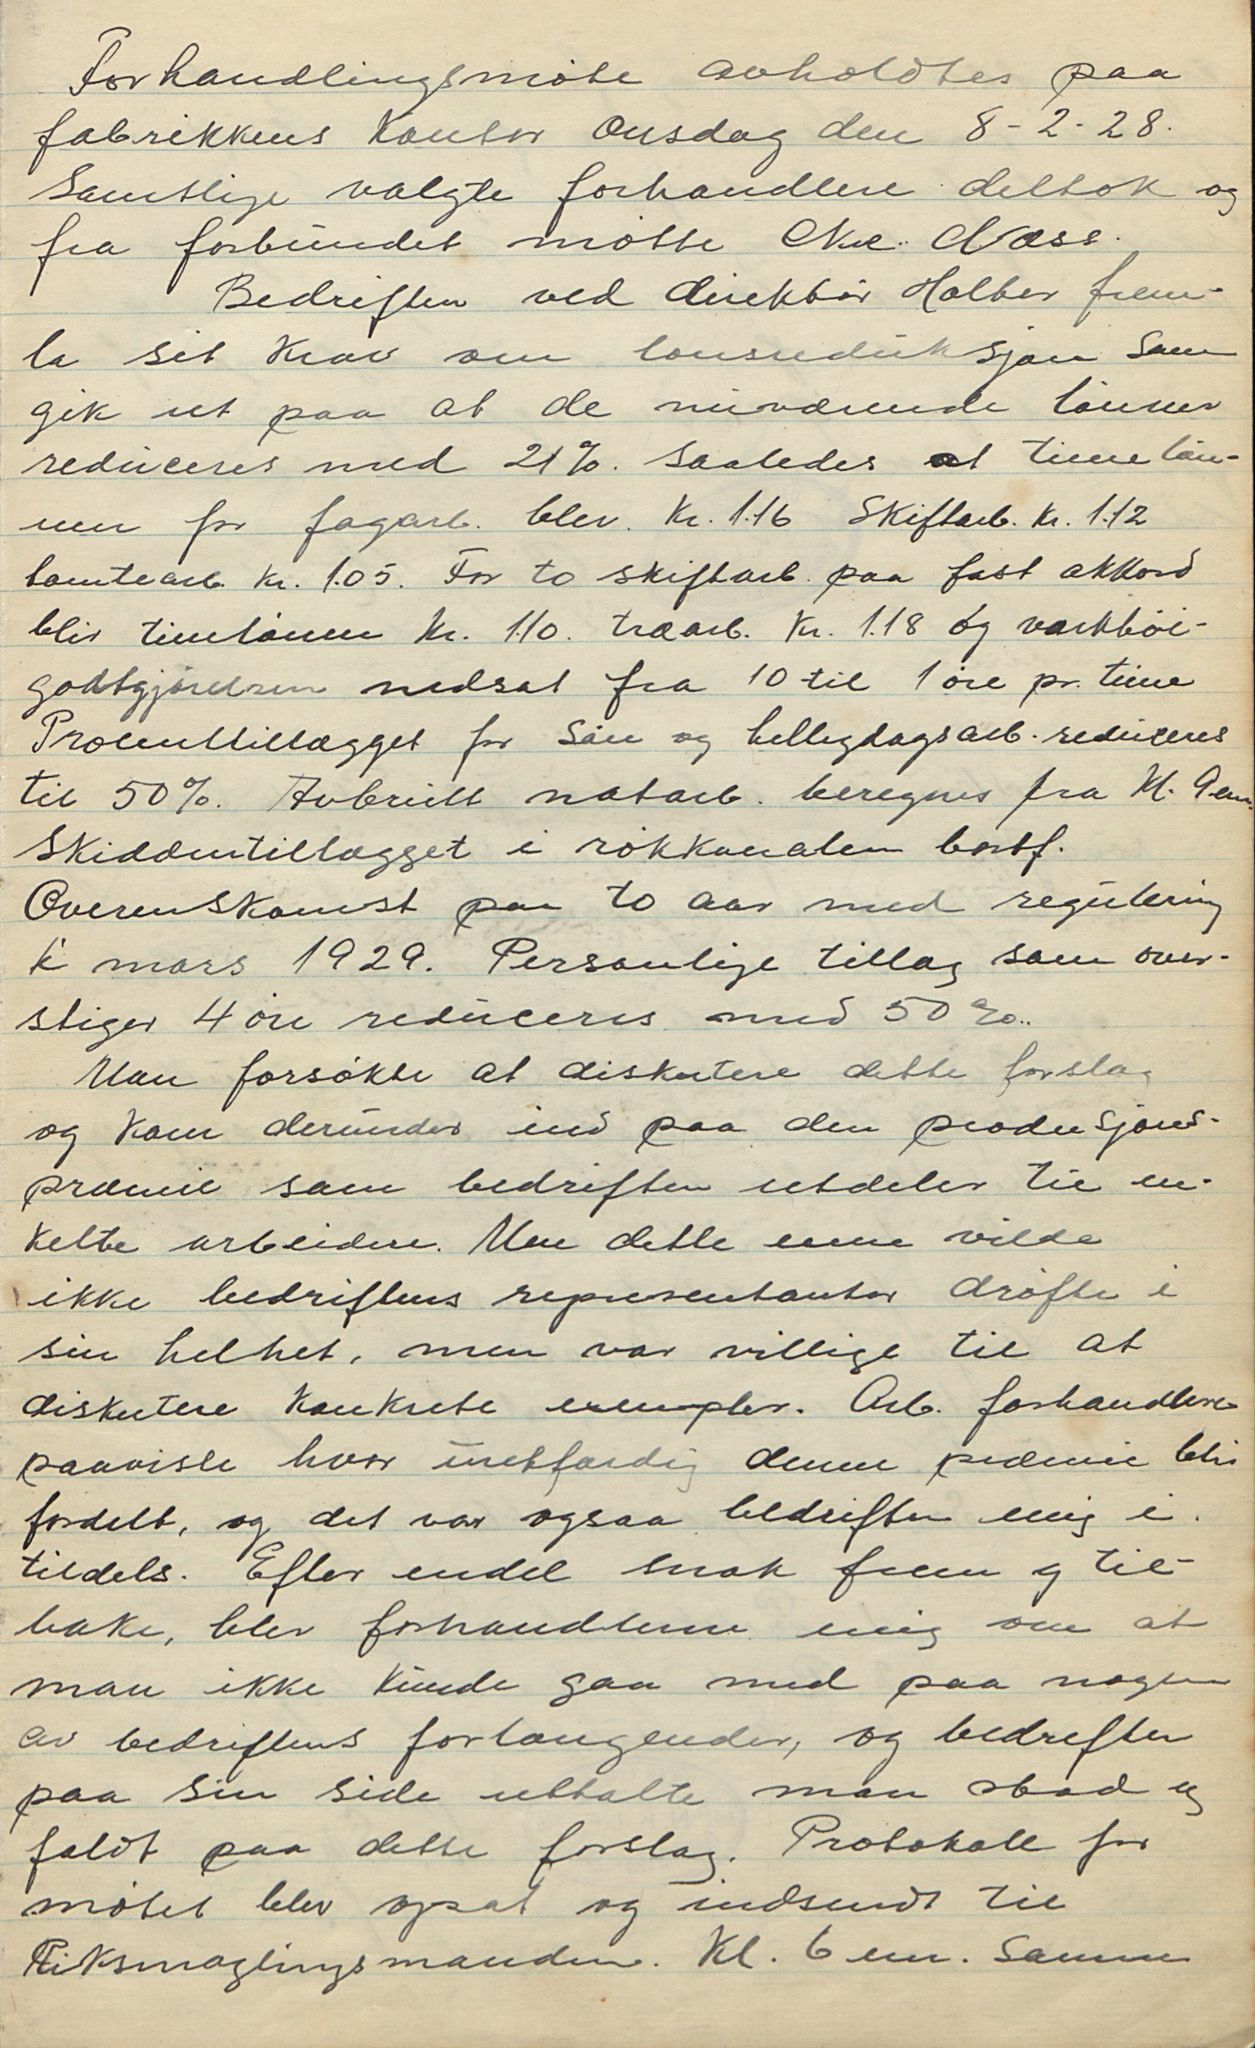 Forhandlingsmöte avholdtes paa
fabrikkens kontor Onsdag den 8-2-28.
Samtlige valgte forhandlere deltok og
fra forbundet møtte Chr. Næss.
Bedriften ved direktør Holter frem-
la sit krav om lønsreduksjon som
gik ut paa at de nuværende lønner
reduceres med 21%. saaledes at timeløn-
nen for fagarb. blev. Kr. 1.16 Skiftarb. Kr. 1.12
tomtearb. Kr. 1.05. For to skiftarb. paa fast akkord
blir timelønnen Kr. 1.10. træarb. Kr. 1.18 og verktøi-
godtgjørelsen nedsat fra 10 til 1 øre pr. time
Procenttillægget for Søn og helligdagsarb. reduceres
til 50%. Avbrutt natarb. beregnes fra Kl. 9 em.
Skiddentillægget i røkkanalen bortf.
Overenskomst paa to aar med regulering
i mars 1929. Personlige tillæg som over-
stiger 4 øre reduceres med 50%.
Man forsøkte at diskutere dette forslag
og kom derunder ind paa den produsjons-
præmie som bedriften utdeler til en-
kelte arbeidere. Men dette emne vilde
ikke bedriftens representanter drøfte i
sin helhet, men var villige til at
diskutere konkrete exempler. Arb. forhandlere
paaviste hvor uretfærdig denne præmie blir
fordelt, og det var ogsaa bedriften enig i
tildels. Efter endel snak frem og til-
bake, blev forhandlerne enig om at
man ikke kunde gaa med paa nogen
av bedriftens forlangender, og bedriften
paa sin side uttalte man stod og
faldt paa dette forslag. Protokoll for
møtet blev opsat og indsendt til
Riksmæglingsmanden. Kl. 6 em. Samme